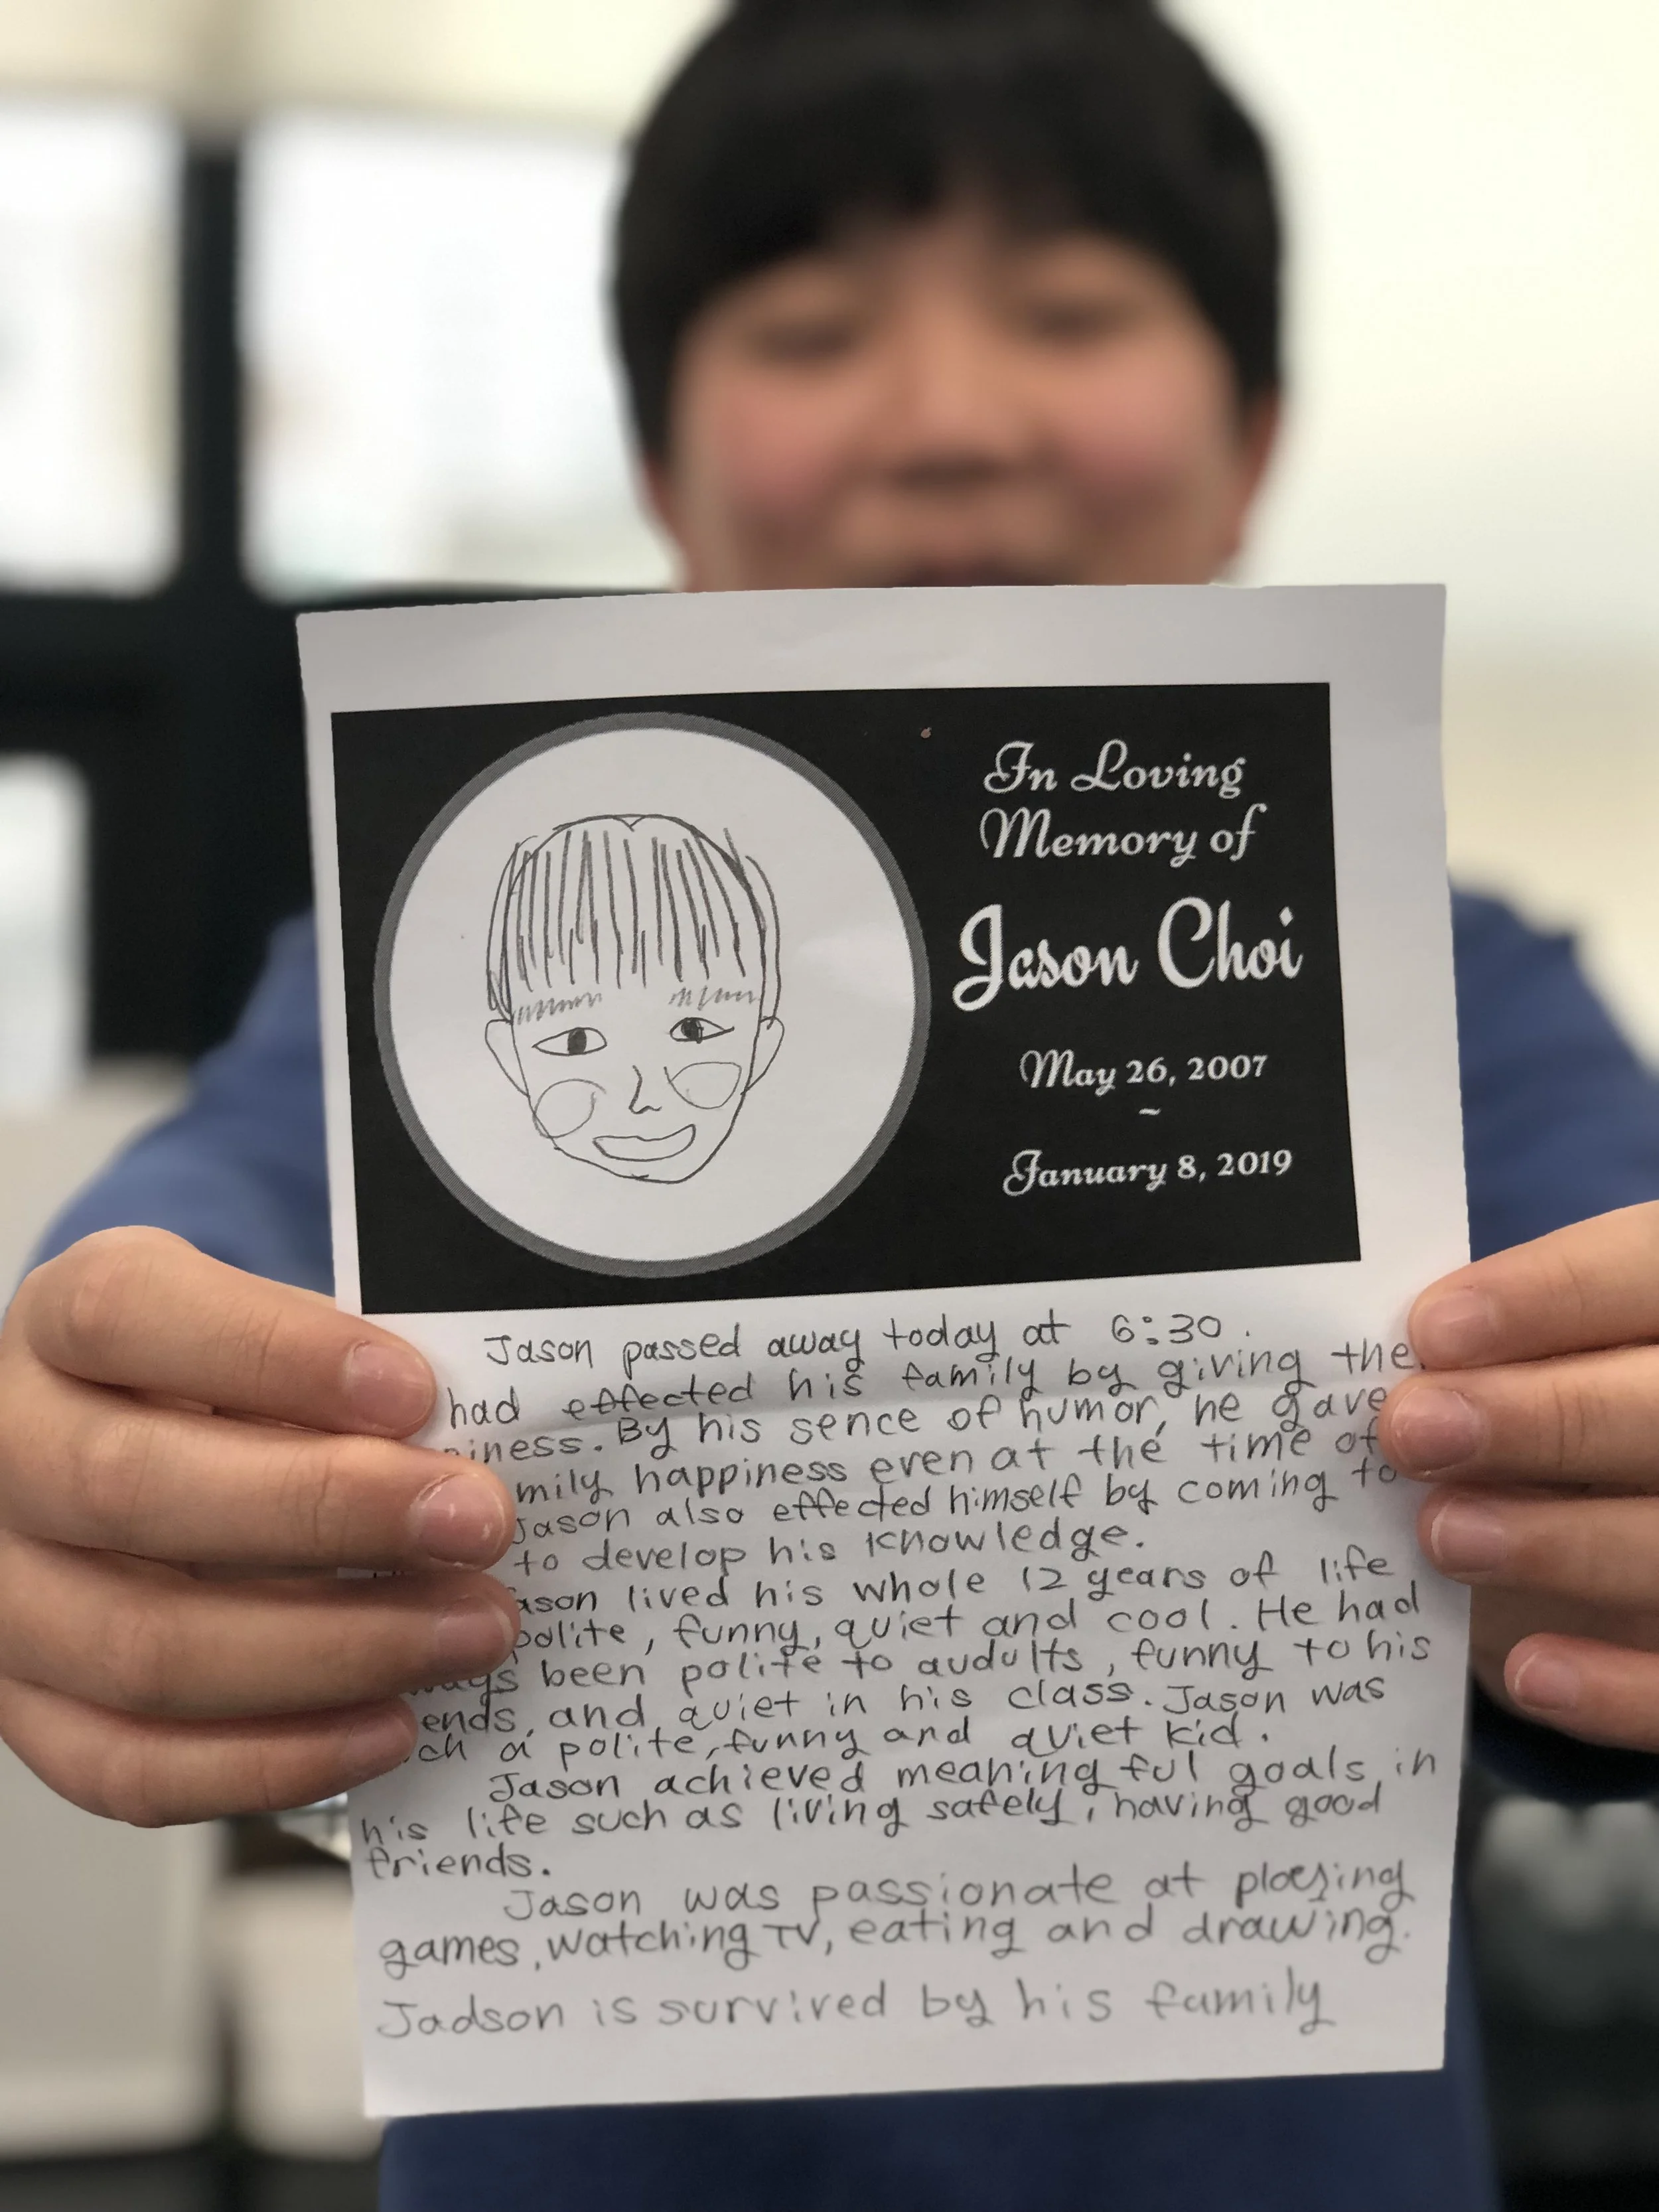 In Loving
Memory of
Jason Choi
May 26, 2007
~
January 8, 2019
Jason passed away today at 6:30.
had effected his family by giving the
iness. By his sence of humor, he gave
mily happiness even at the time of
Jason also effected himself by coming to
to develop his knowledge.
ason lived his whole 12 years of life
polite, funny, quiet and cool. He had
ways been polite to audults, funny to his
ends, and quiet in his class. Jason was
ch a polite, funny and quiet kid.
Jason achieved meaningful goals in
his life such as living safely, having good
friends.
Jason was passionate at playing
games, watching TV, eating and drawing.
Jadson is survived by his family